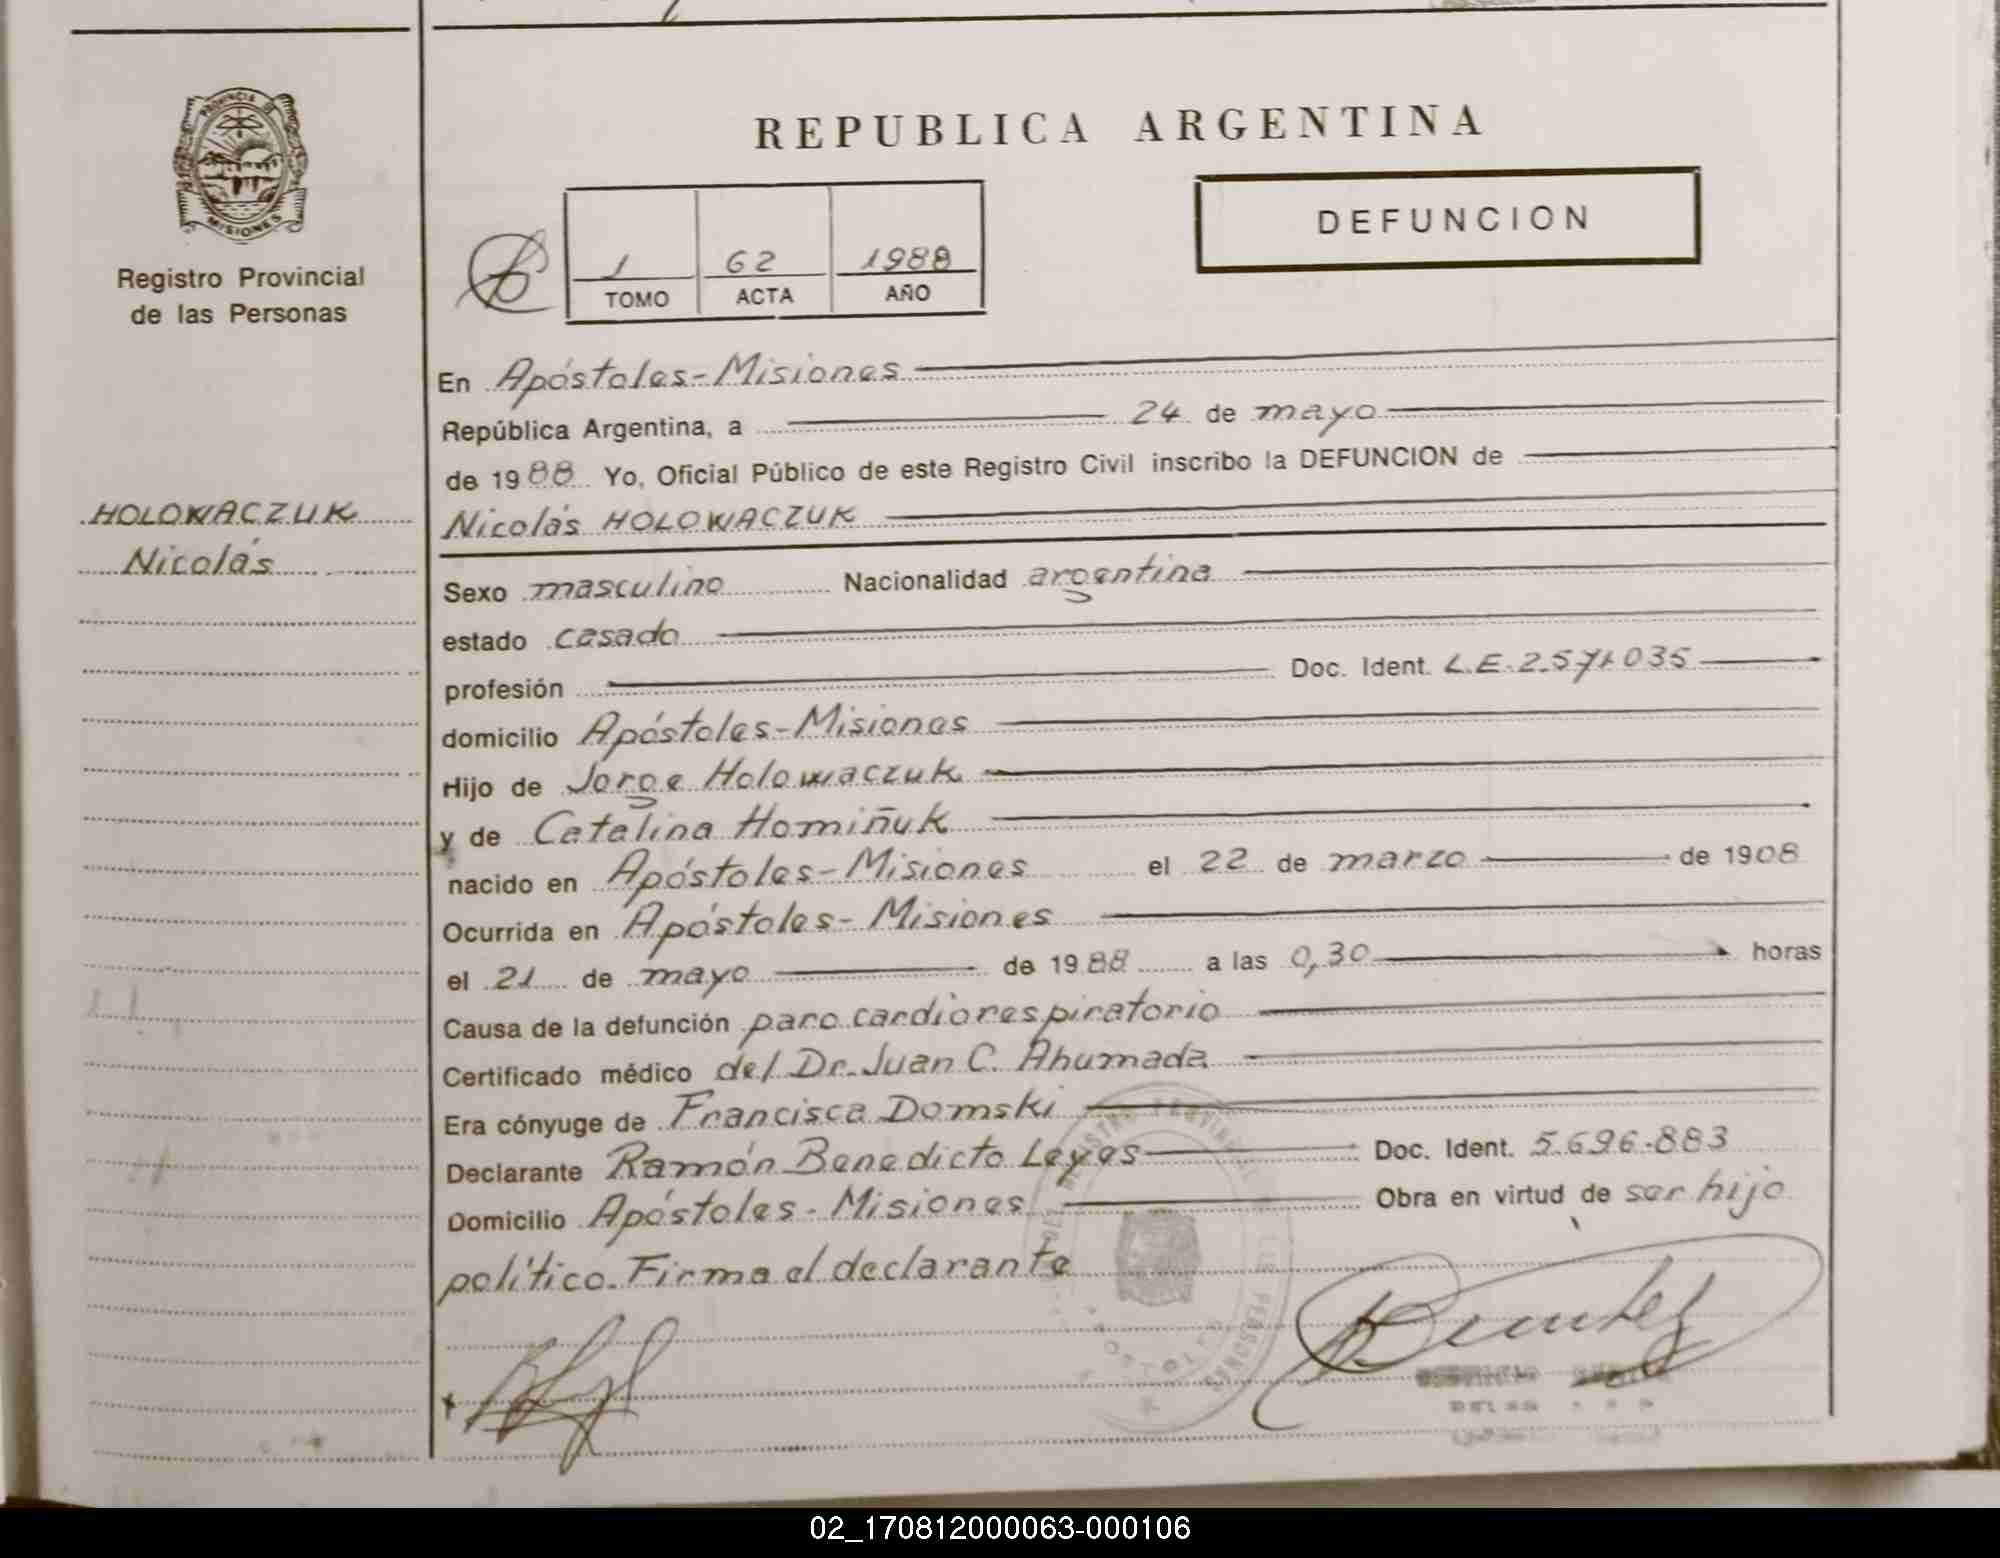 PROVINCIA D
MISIONES
Registro Provincial
de las Personas
HOLOWACZUK
Nicolás
REPUBLICA ARGENTINA
DEFUNCION
1 62 1988
TOMO ACTA AÑO
En Apóstoles-Misiones
República Argentina, a 24 de mayo
de 1988 Yo, Oficial Público de este Registro Civil inscribo la DEFUNCION de
Nicolás HOLOWACZUK
Sexo masculino Nacionalidad argentina
estado casado
profesión Doc. Ident. L.E.2.571.035
domicilio Apóstoles-Misiones
Hijo de Jorge Holowaczuk
y de Catalina Homiñuk
nacido en Apóstoles-Misiones el 22 de marzo de 1908
Ocurrida en Apóstoles-Misiones
el 21 de mayo de 1988 a las 0,30 horas
Causa de la defunción paro cardiorespiratorio
Certificado médico del Dr. Juan C. Ahumada
Era cónyuge de Francisca Domski
Declarante Ramón Benedicto Leyes Doc. Ident. 5.696.883
Domicilio Apóstoles-Misiones Obra en virtud de ser hijo
político. Firma el declarante
02_170812000063-000106